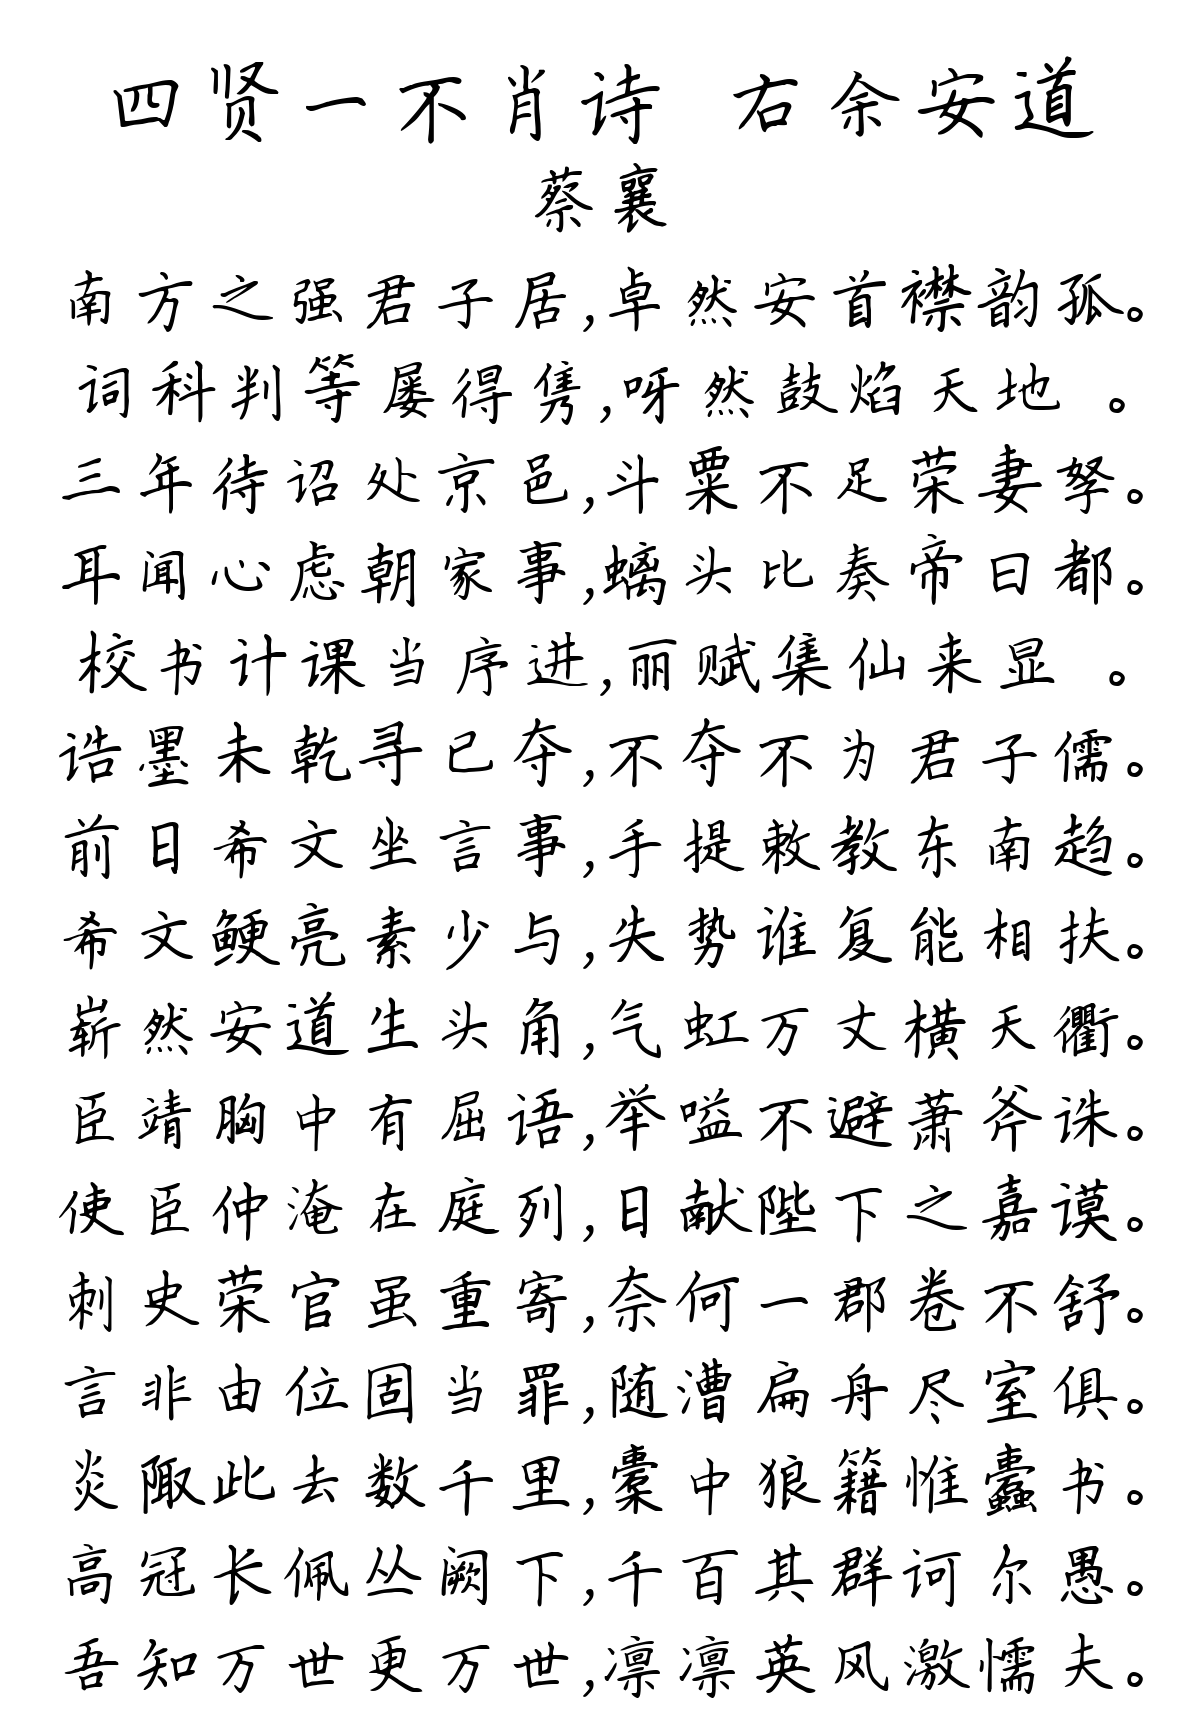 四贤一不肖诗 右余安道
蔡襄
南方之强君子居,卓然安首襟韵孤。
词科判等屡得隽,呀然鼓焰天地 。
三年待诏处京邑,斗粟不足荣妻孥。
耳闻心虑朝家事,螭头比奏帝曰都。
校书计课当序进,丽赋集仙来显 。
诰墨未乾寻已夺,不夺不为君子儒。
前日希文坐言事,手提敕教东南趋。
希文鲠亮素少与,失势谁复能相扶。
崭然安道生头角,气虹万丈横天衢。
臣靖胸中有屈语,举嗌不避萧斧诛。
使臣仲淹在庭列,日献陛下之嘉谟。
刺史荣官虽重寄,奈何一郡卷不舒。
言非由位固当罪,随漕扁舟尽室俱。
炎陬此去数千里,橐中狼籍惟蠹书。
高冠长佩丛阙下,千百其群诃尔愚。
吾知万世更万世,凛凛英风激懦夫。